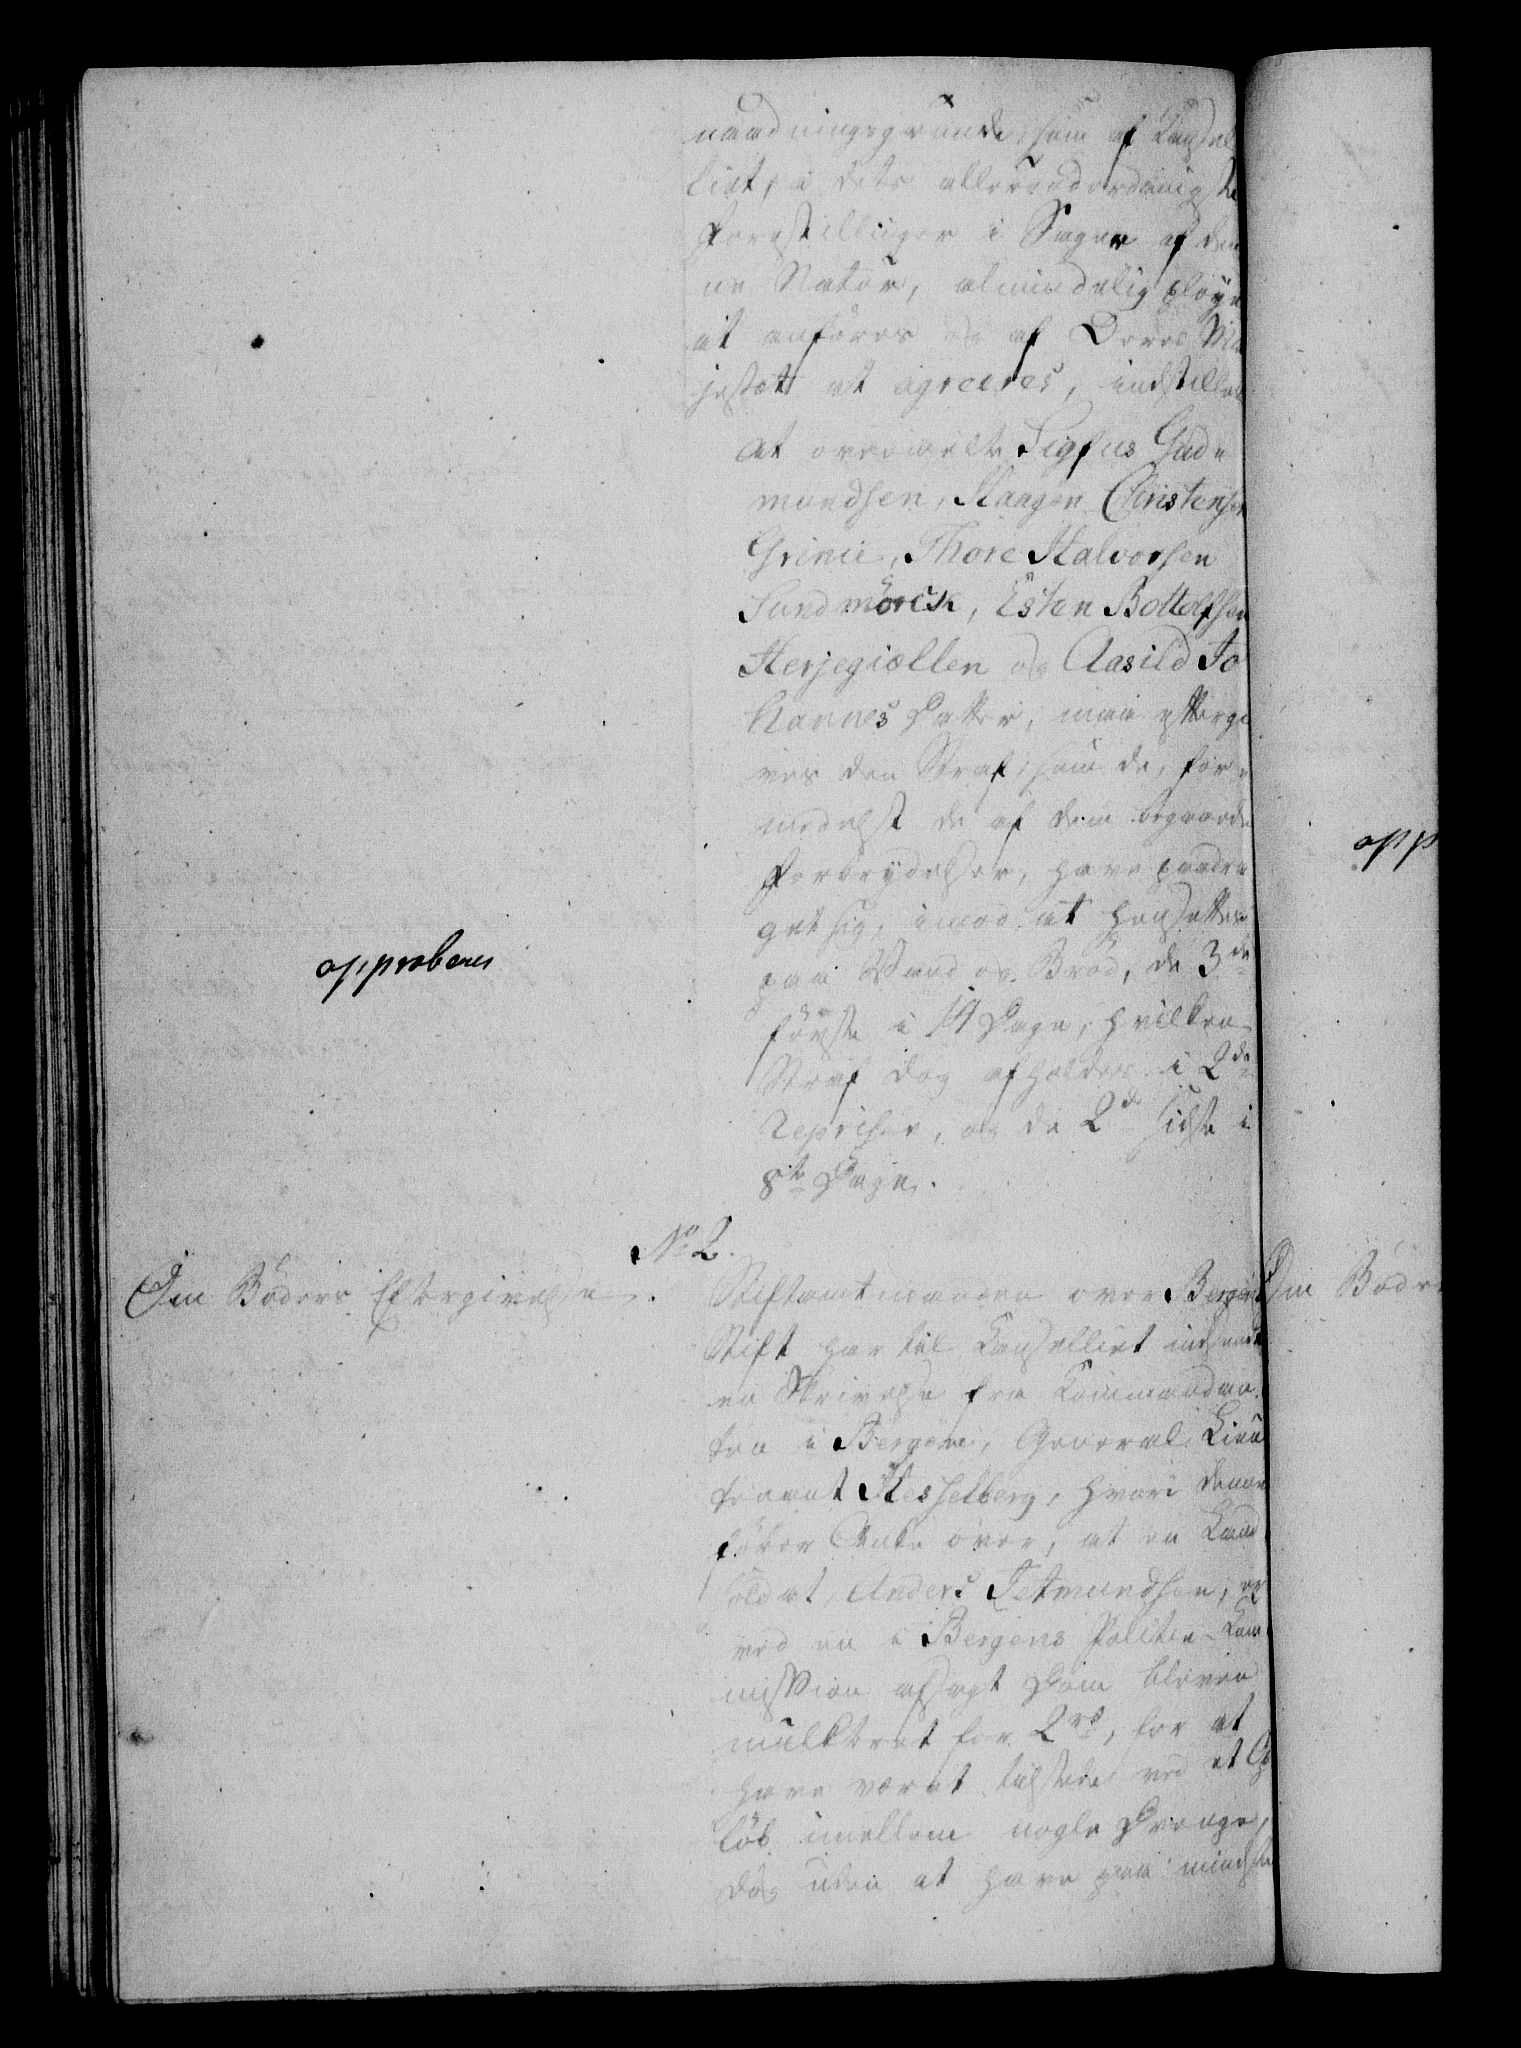 naadningsgrunde, som af Cancel
liet, i dets allerunderdanigste
Forestillinger i Sager af den
ne Natur, almindelig pleye
at anføres og af Deres Ma
jestæt at agreeres, indstilles
At ovenmelte Sigfus Gud-
mundsen, Haagen Christensen
Grimie, Thore Halvorsen
Sundmörck, Esten Bottolfsen
Herjegiællen og Aasild Jo
hannes Datter, maa efterge
ves den Straf, som de, for-
medelst de af dem begaaede
Forbrydelser, have paadra
get sig, imod at hensættes
paa Vand og Brød, de 3de
første i 14 Dage, hvilken
Straf dog afholdes i 2de
Repriser, og de 2de sidste i
8te Dage.
approberes
No 2.
Om Böders Eftergivelse.
Stiftamtmanden over Bergens
Stift har til Cancelliet indsendt
en Skrivelse fra Kommandan
ten i Bergen, General Lieu
tenant Hesselberg, hvori denne
fører Anke over, at en Land
soldat, Anders Tetmundsen, er
ved en i Bergens Politie-Kom
mission afsagt Dom bleven
mulkteret for 2 rd, for at
have været tilstede ved et Op
løb imellem nogle Drenge,
dog uden at have paa mindste
opp
Om Böde